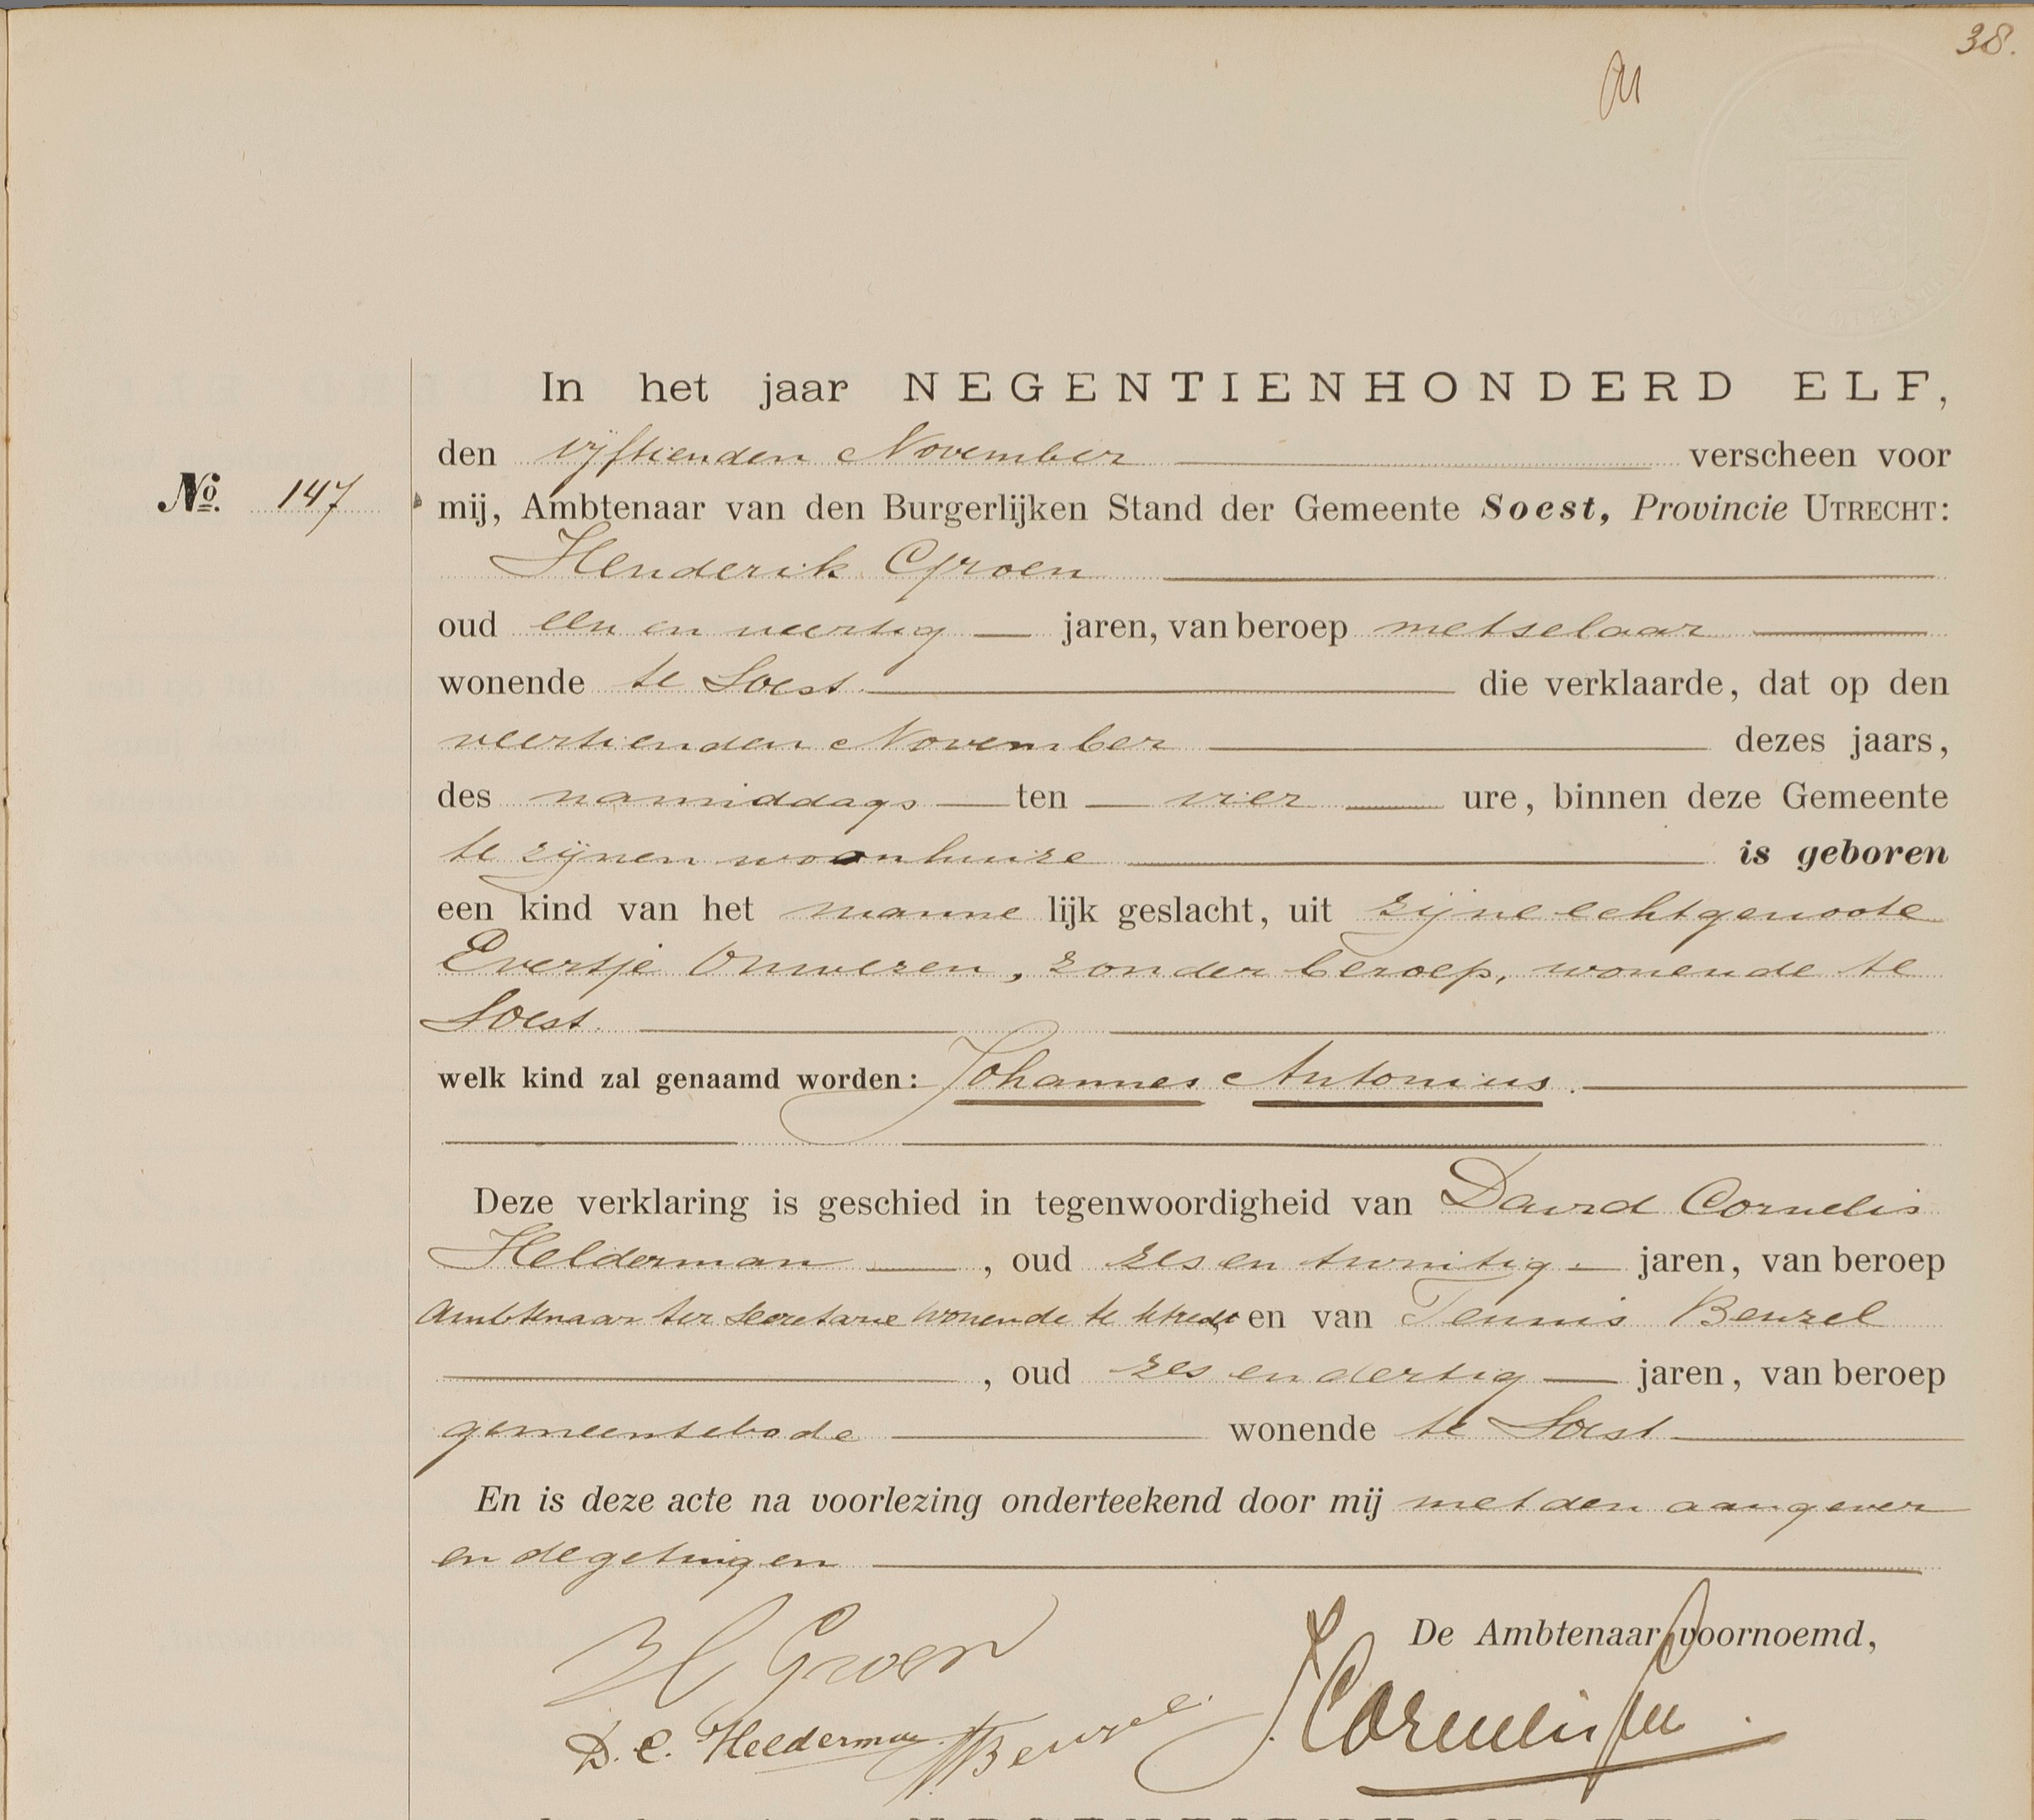 38.
In het jaar NEGENTIENHONDERD ELF,
den vijftienden November verscheen voor
No. 147
mij, Ambtenaar van den Burgerlijken Stand der Gemeente Soest, Provincie UTRECHT:
Henderik Groen
oud een en veertig jaren, van beroep metselaar
wonende te Soest die verklaarde, dat op den
veertienden November dezes jaars,
des namiddags ten vier ure, binnen deze Gemeente
te zijnen woonhuize is geboren
een kind van het manne lijk geslacht, uit zijne echtgenoote
Evertje Onwezen, zonder beroep, wonende te
Soest.
welk kind zal genaamd worden: Johannes Antonius.
Deze verklaring is geschied in tegenwoordigheid van David Cornelis
Helderman, oud zes en twintig jaren, van beroep
Ambtenaar ter secretarie wonende te Utrecht, en van Teunis Beuzel
, oud zes en dertig jaren, van beroep
gemeentebode wonende te Soest
En is deze acte na voorlezing onderteekend door mij met den aangever
en de getuigen
De Ambtenaar voornoemd,
H Groen
D. C. Helderman
TBeuzel